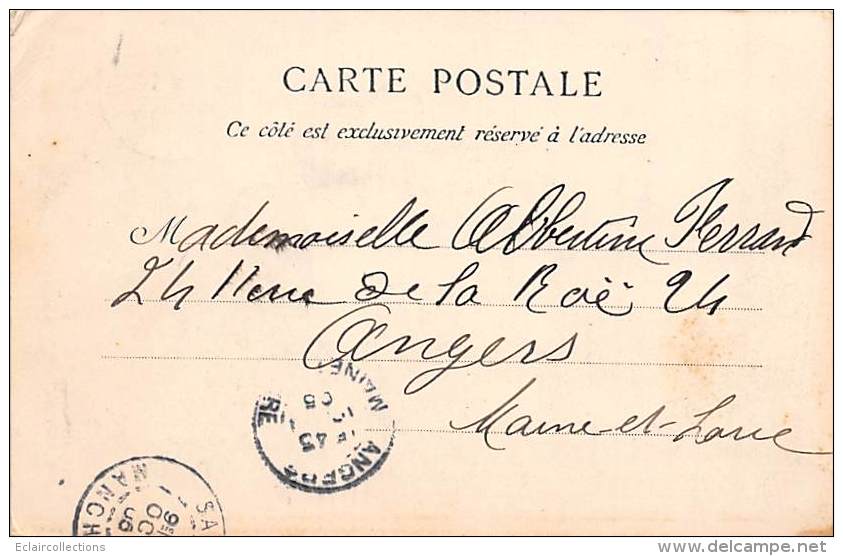 CARTE POSTALE
Ce côté est exclusivement réservé à l'adresse
Mademoiselle Albertine Ferrand
24 Rue de la Roë 24
Angers
Maine-et-Loire
ANGERS
MAINE
MANCH
Eclaircollections
www.delcampe.net